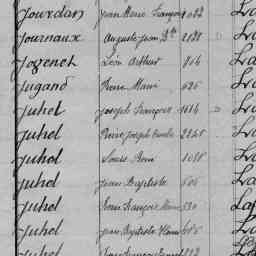 Jourdan Jean Marie François 1082 La
Journaux Auguste Jean Bte 2188 La
Joyenet Léon Arthur 964 La
Jugand Pierre Marie 626 La
Juhel Joseph François 1614 La
Juhel Pierre Joseph Emile 2265 La
Juhel Louis René 1098 La
Juhel Jean Baptiste 606 La
Juhel Pierre François Marie 530 La
Juhel Jean Baptiste Marie 606 La
Juhel